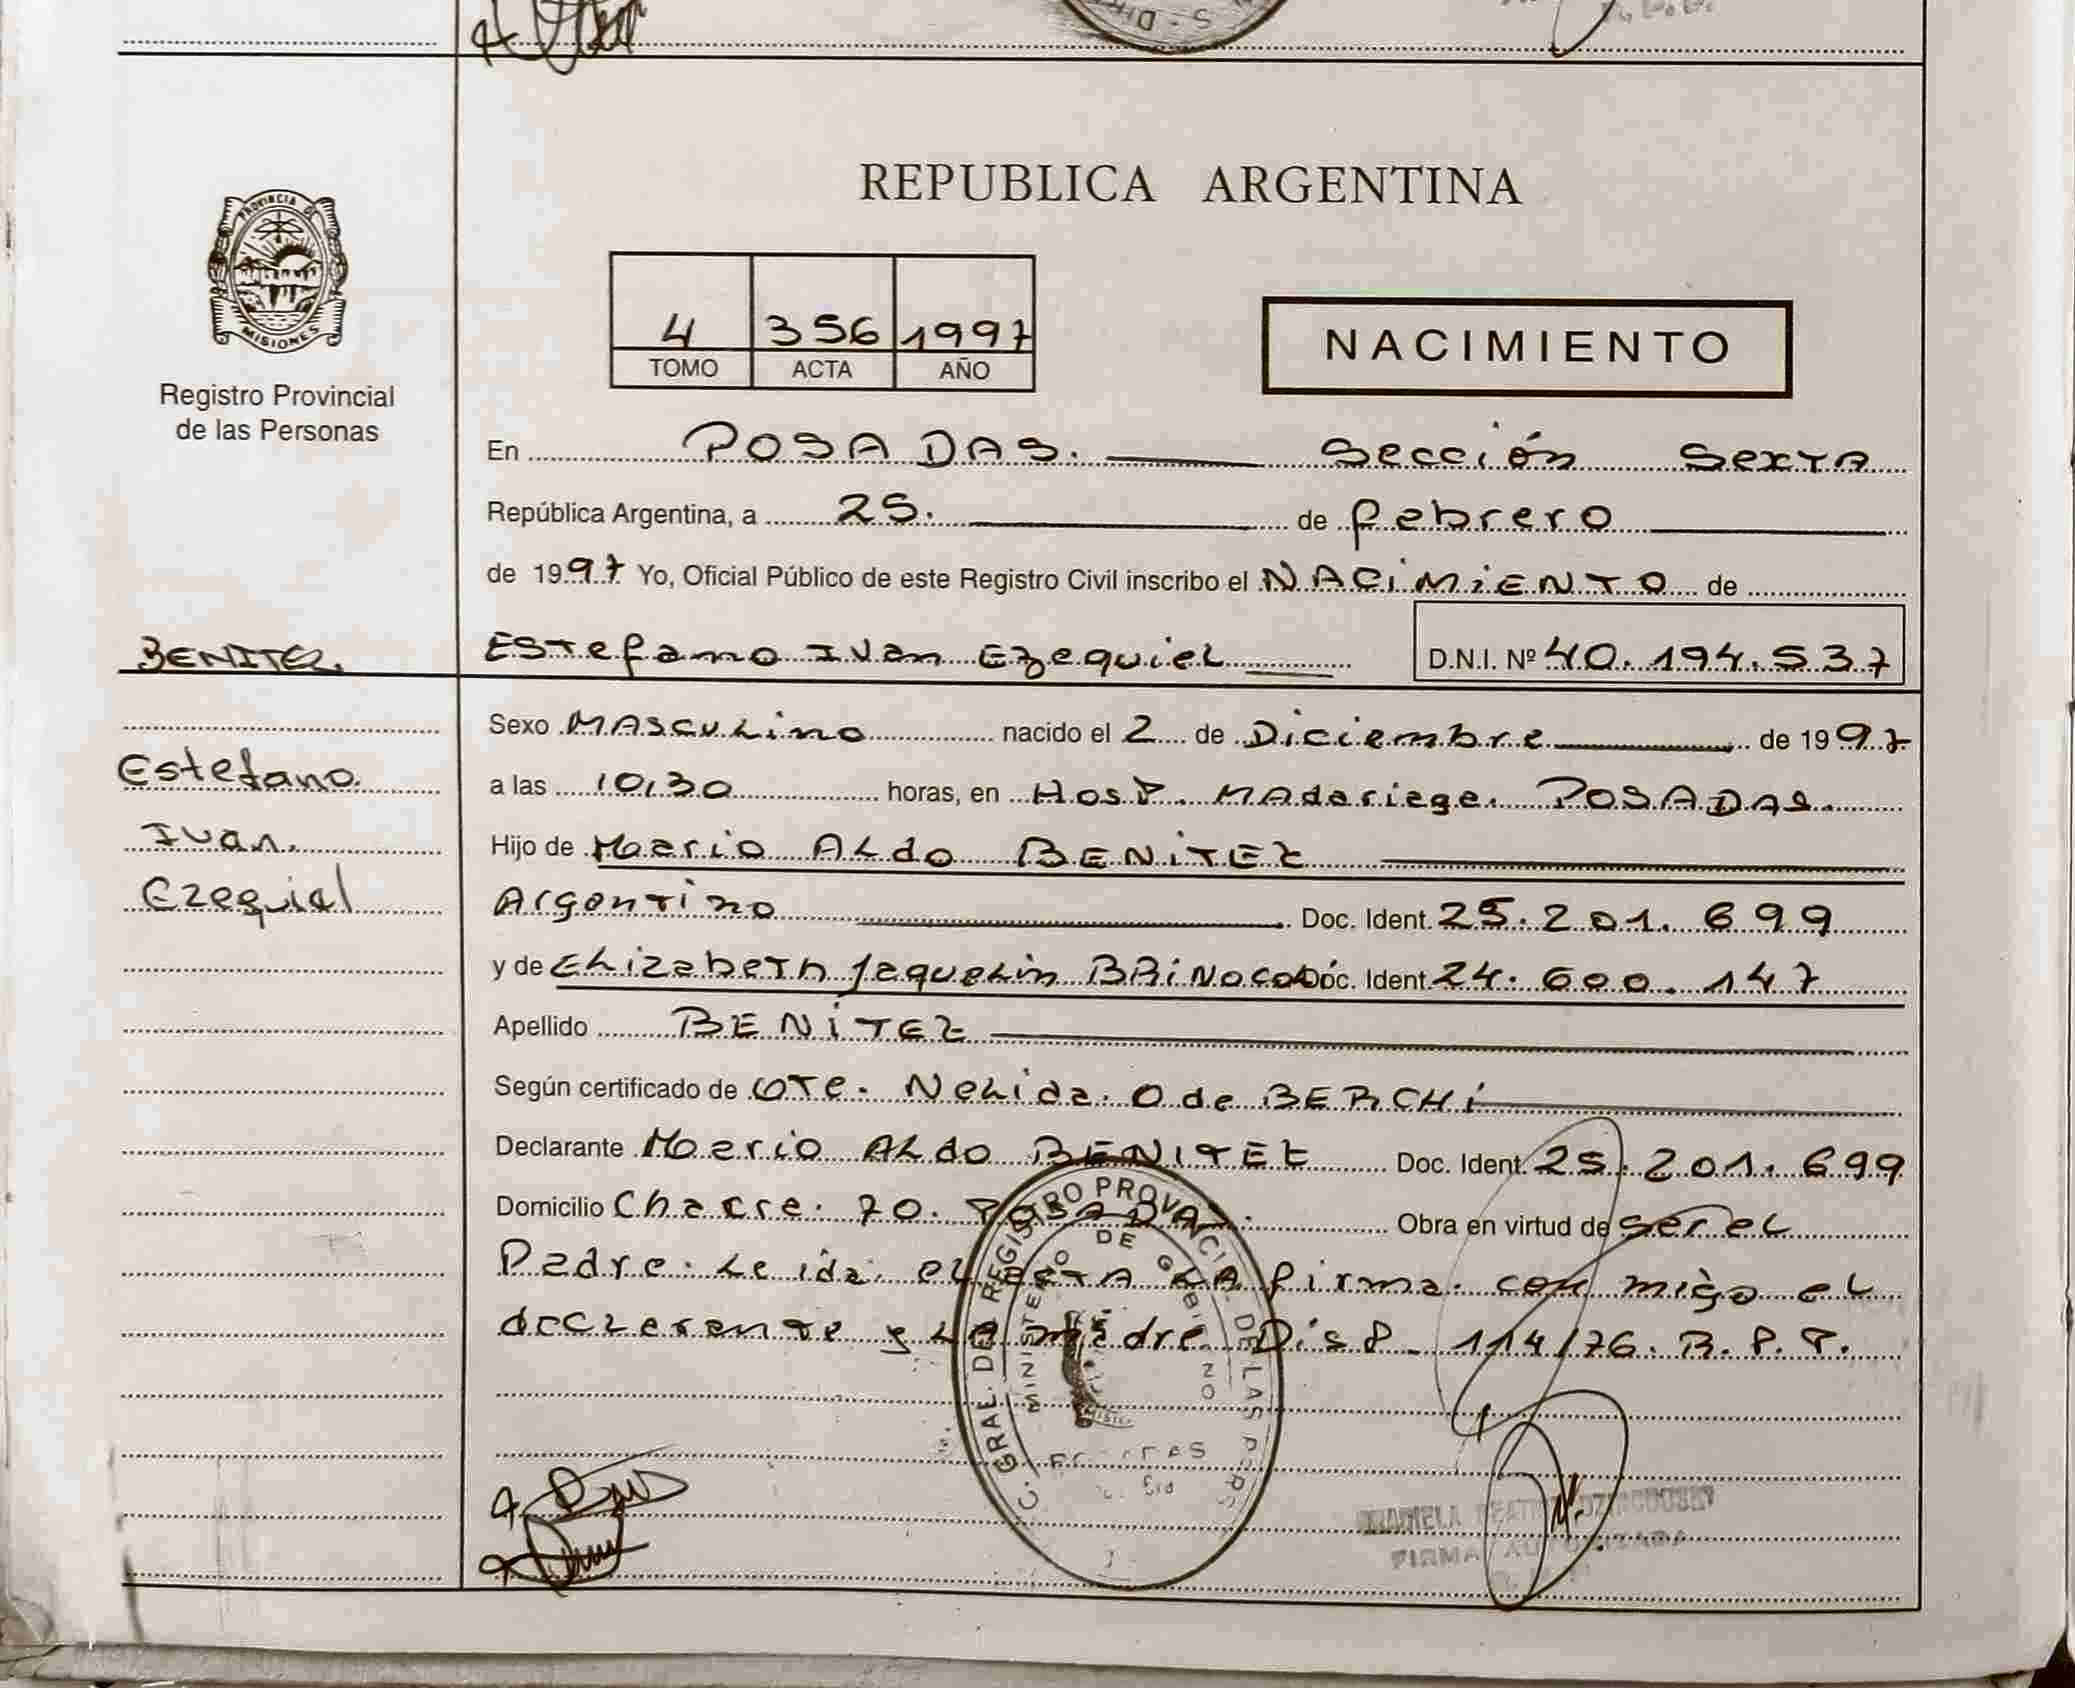 REPUBLICA ARGENTINA
PROVINCIA DE
MISIONES
Registro Provincial
de las Personas
4 356 1997
TOMO ACTA AÑO
NACIMIENTO
En POSADAS. Sección Sexta
República Argentina, a 25. de febrero
de 1997 Yo, Oficial Público de este Registro Civil inscribo el NACIMIENTO de
BENITEZ. Estefano Ivan Ezequiel D.N.I. Nº 40.194.537
Sexo Masculino nacido el 2 de Diciembre de 1997
Estefano. a las 10,30 horas, en Hosp. Madariaga. POSADAS.
Ivan. Hijo de Mario Aldo BENITEZ
Ezequiel Argentino Doc. Ident. 25.201.699
y de Elizabeth Jaquelin Doc. Ident. 24.600.147
Apellido BENITEZ
Según certificado de OTE. Nelida. O de BERCHI
Declarante Mario Aldo BENITEZ Doc. Ident. 25.201.699
Domicilio Chacra. 70. POSADAS. Obra en virtud de ser el
Padre. Leida. el acta la firma. con migo el
declarante y la madre Disp. 114/76. R.P.P.
C. GRAL. DEL REGISTRO PROVINCIAL DE LAS PERS
MINISTERIO DE GOBIERNO
FIRMA AUTORIZADA